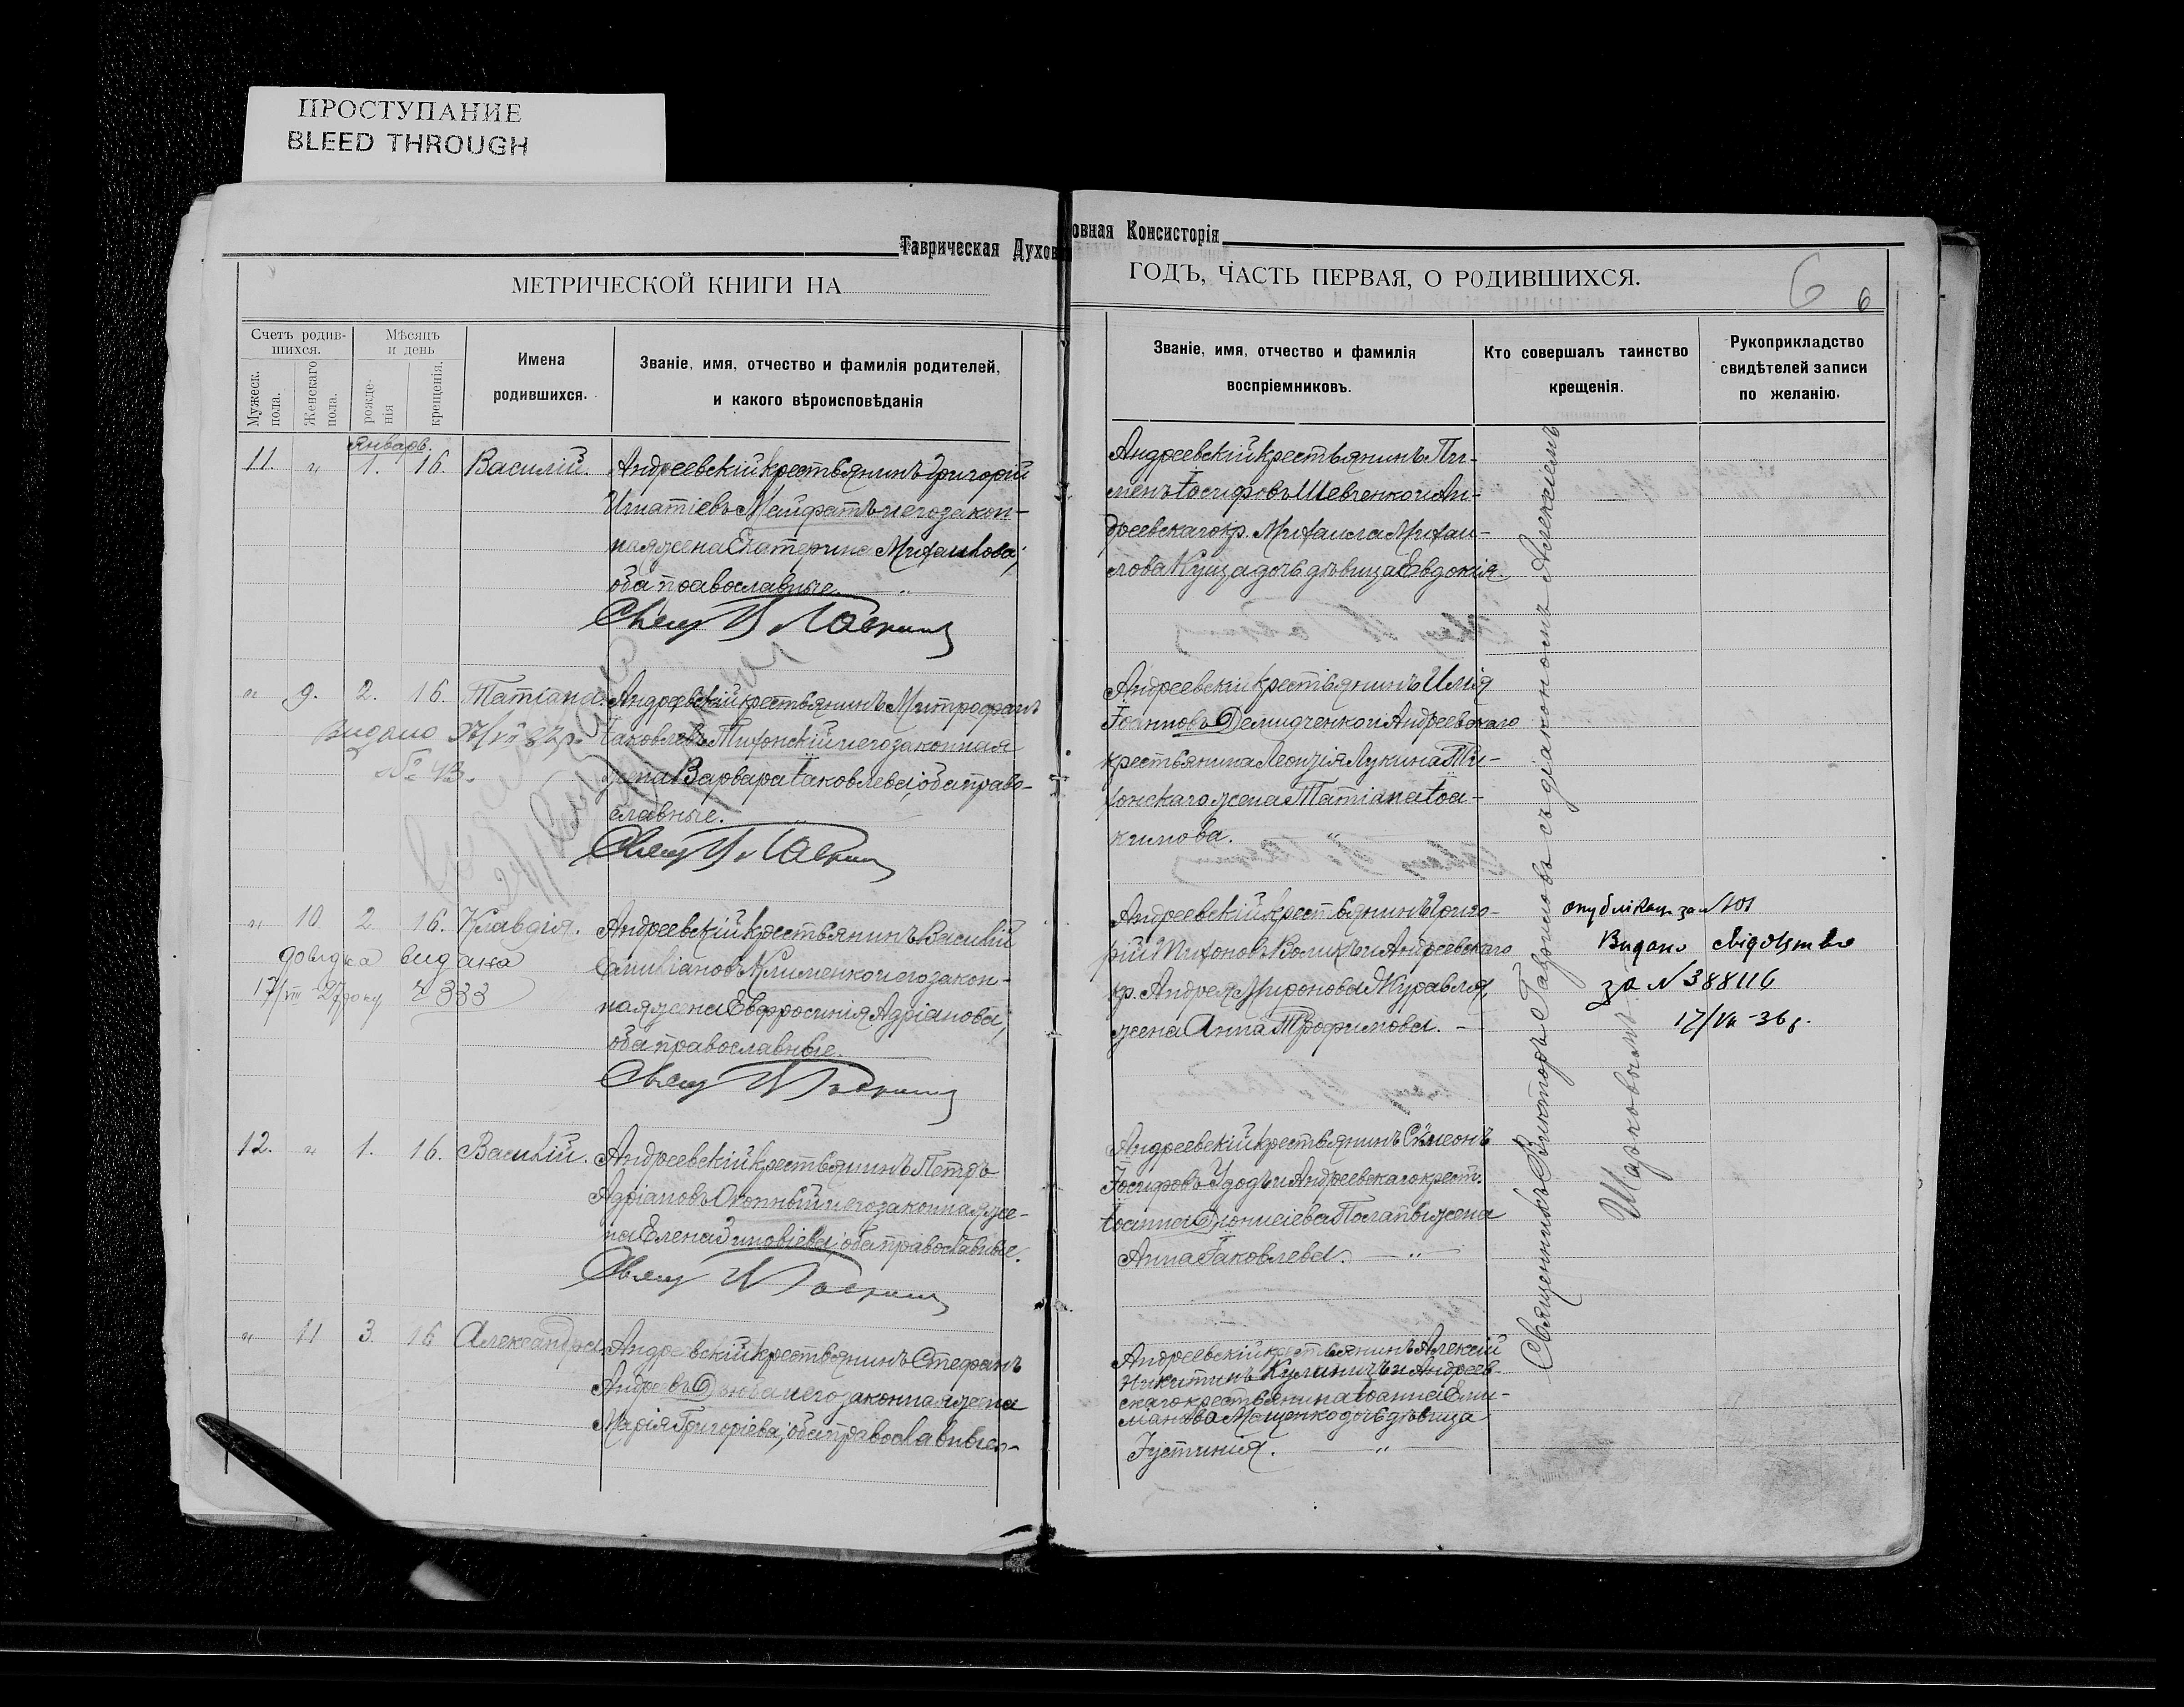 ПРОСТУПАНИЕ
BLEED THROUGH
Таврическая Духовная Консисторія
МЕТРИЧЕСКОЙ КНИГИ НА
ГОДЪ, ЧАСТЬ ПЕРВАЯ, О РОДИВШИХСЯ.
6 6
Счетъ родив-
шихся.
Мужеск.
пола.
Женскаго
пола.
Мѣсяцъ
и день
рожде-
нія
крещенія.
Имена
родившихся.
Званіе, имя, отчество и фамилія родителей,
и какого вѣроисповѣданія
Званіе, имя, отчество и фамилія
воспріемниковъ.
Кто совершалъ таинство
крещенія.
Рукоприкладство
свидѣтелей записи
по желанію.
Январь.
11. " 1. 16. Василій.
Андреевскій крестьянинъ Григорій
Игнатіевъ и его закон-
ная жена Екатерина Михаилова,
оба православные.
Андреевскій крестьянинъ Пи-
менъ Іосифовъ Шевченко и Ан-
дреевскаго кр. Михаила Михаи-
лова Куща дочь дѣвица Евдокія.
" 9. 2. 16. Татіана.
Видано
№ 43.
Андреевскій крестьянинъ Митрофанъ
Іаковлевъ Тихонскій и его законная
жена Варвара Іаковлева, оба право-
славные.
Андреевскій крестьянинъ Илія
Іоанновъ Демидченко и Андреевскаго
крестьянина Леонтія Лукина Ти-
хонскаго жена Татіана Іоа-
кимова. "
" 10 2. 16. Клавдія.
довидка видана
17/VIII 27 року ч 333
Андреевскій крестьянинъ Василій
Емиліановъ Клименко и его закон-
ная жена Евфросинія Адріанова,
оба православные.
Андреевскій крестьянинъ Григо-
рій Тихоновъ и Андреевскаго
кр. Андрея Миронова Журавля,
жена Анна Трофимова.
Видано
за N 388116
12. " 1. 16. Василій.
Андреевскій крестьянинъ Петръ
Адріановъ и его законная же-
на Елена Зиновіева, оба православные.
Андреевскій крестьянинъ Сѵмеонъ
Іосифовъ Удодъ и Андреевскаго крест.
Іоанна Діонисіева жена
Анна Іаковлева. "
" 11 3. 16 Александра
Андреевскій крестьянинъ Стефанъ
Андреевъ и его законная жена
Марія Григоріева, оба православные.
Андреевскій крестьянинъ Алексій
Никитинъ Кулиничъ и Андреев-
скаго крестьянина Іоанна
дочь дѣвица
Іустинія. "
Священникъ Викторъ съ діакономъ Алексіемъ